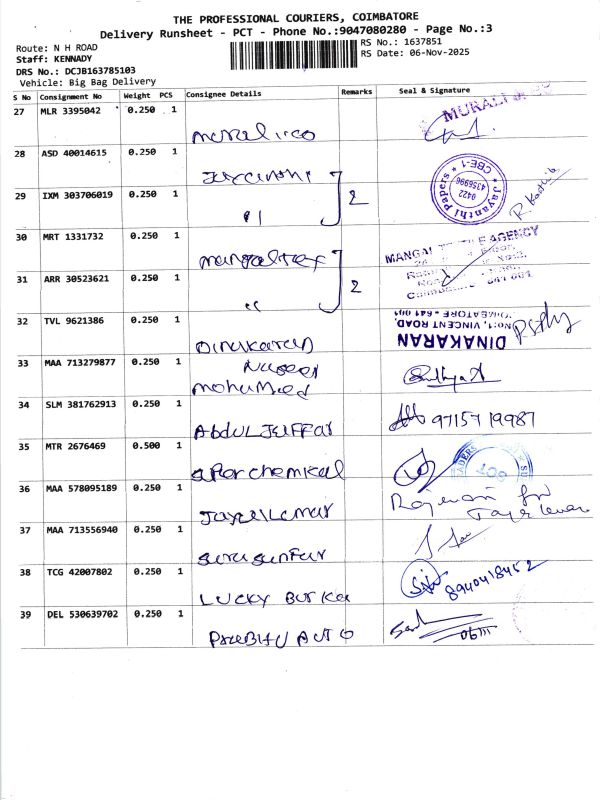 THE PROFESSIONAL COURIERS, COIMBATORE
Delivery Runsheet - PCT - Phone No.:9047080280 - Page No.:3
Route: N H ROAD
Staff: KENNADY
DRS No.: DCJB163785103
Vehicle: Big Bag Delivery
RS No.: 1637851
RS Date: 06-Nov-2025
S No Consignment No Weight PCS Consignee Details Remarks Seal & Signature
27 MLR 3395042 0.250 1
MURALI &
28 ASD 40014615 0.250 1
Jayanthi Papers * CBE-1 *
0422
4356996
29 IXM 303706019 0.250 1
"
2
30 MRT 1331732 0.250 1
MANGAL AGENCY
31 ARR 30523621 0.250 1
"
2
641 001
32 TVL 9621386 0.250 1
Dinakaran
DINAKARAN
No:1, VINCENT ROAD,
COIMBATORE - 641 001
33 MAA 713279877 0.250 1
Naseer
Mohamed
34 SLM 381762913 0.250 1
Abdul Jaffar
9715719987
35 MTR 2676469 0.500 1
chemical
36 MAA 578095189 0.250 1
Jayakumar
37 MAA 713556940 0.250 1
38 TCG 42007802 0.250 1
LUCKY
8940418452
39 DEL 530639702 0.250 1
PRABHU AUTO
06/11